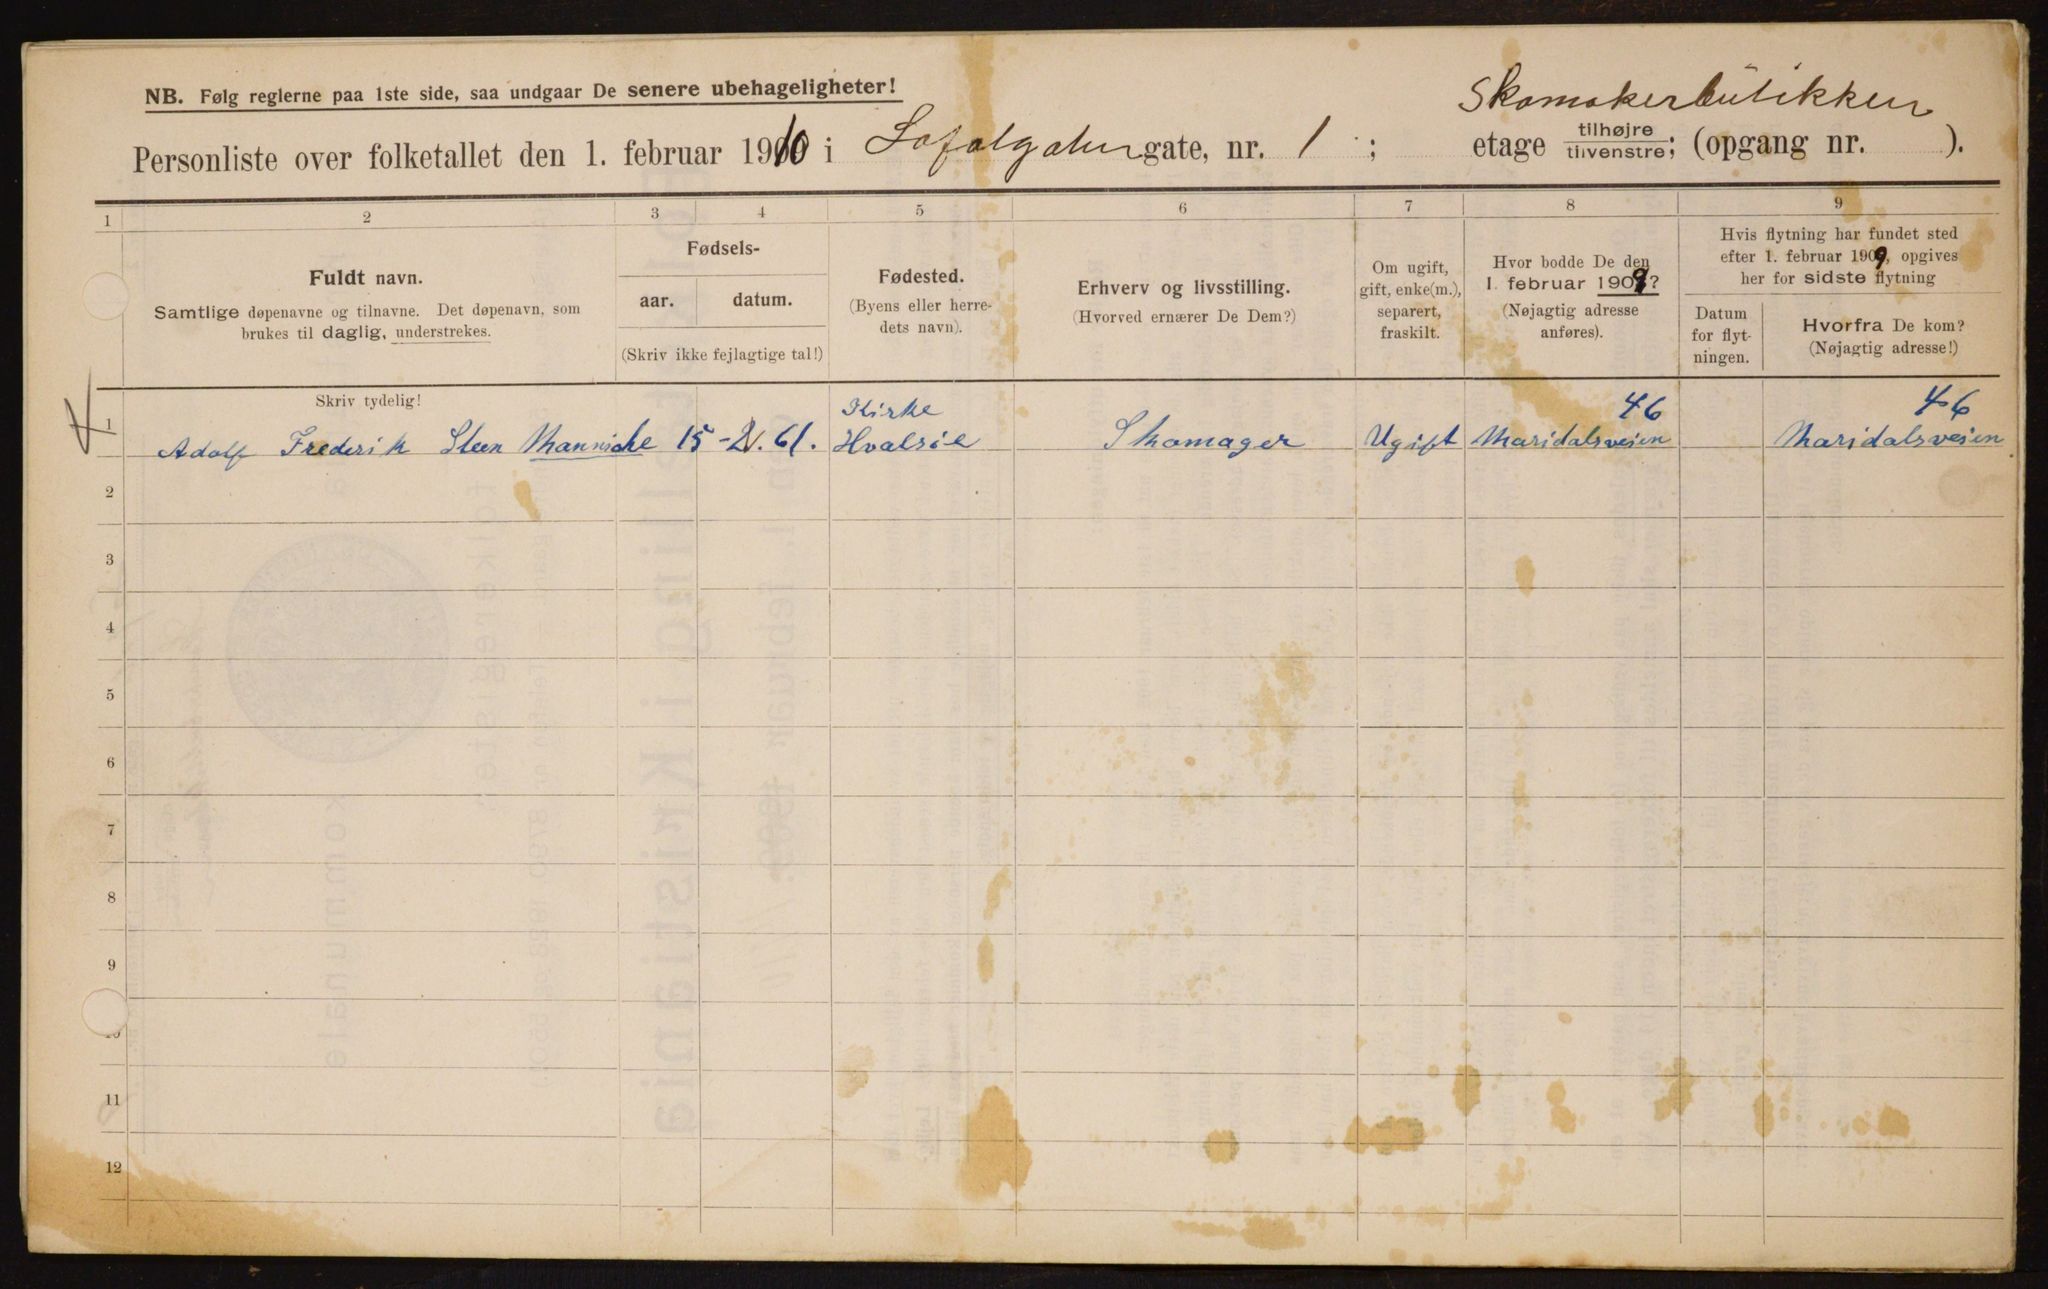 NB. Følg reglerne paa 1ste side, saa undgaar De senere ubehageligheter!
Skomakerbutikken
Personliste over folketallet den 1. februar 1910 i gate, nr. 1 ; etage tilhøjre/tilvenstre; (opgang nr. ).
1 2 3 4 5 6 7 8 9
Fuldt navn.
Samtlige døpenavne og tilnavne. Det døpenavn, som
brukes til daglig, understrekes.
Fødsels-
aar. datum.
(Skriv ikke fejlagtige tal!)
Fødested.
(Byens eller herre-
dets navn).
Erhverv og livsstilling.
(Hvorved ernærer De Dem?)
Om ugift,
gift, enke(m.),
separert,
fraskilt.
Hvor bodde De den
1. februar 1909?
(Nøjagtig adresse
anføres).
Hvis flytning har fundet sted
efter 1. februar 1909, opgives
her for sidste flytning
Datum
for flyt-
ningen.
Hvorfra De kom?
(Nøjagtig adresse!)
Skriv tydelig!
Kirke 46 46
1 Adolf Frederik Steen Manniche 15 - 2. 61. Hvalsöe Skomager Ugift Maridalsveien Maridalsveien
2
3
4
5
6
7
8
9
10
11
12